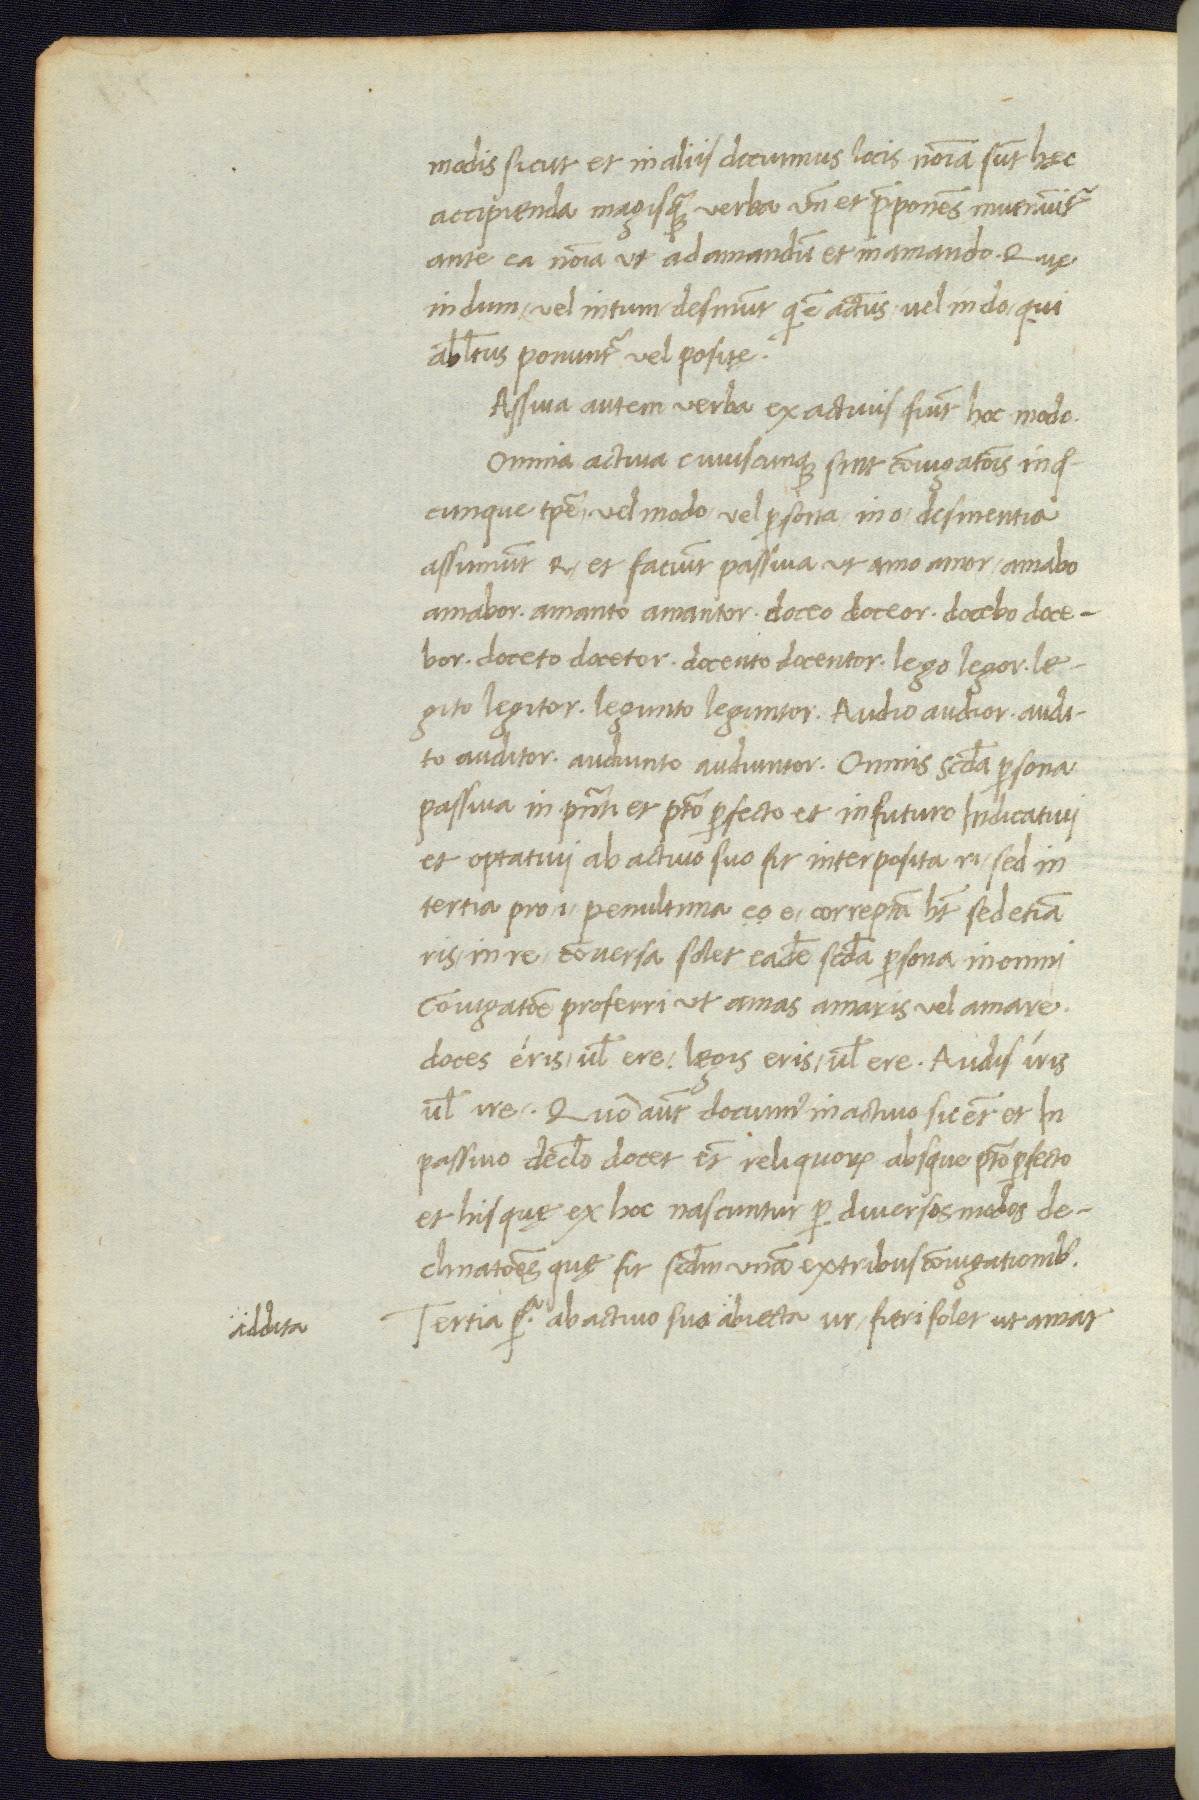 modis sicut et in aliis docuimus locis noīa sūt hęc
accipienda magisq̃ȝ verba vñ et p̄ponēs inueniūt᷑
ante ea noīa vt ad amandū et in amando. Quę
in dum / vel in tum / desinūt q̄ ē actūs / uel in do / qui
abl̄tus ponunt᷑ vel positę.
Assiua autem verba ex actiuis fiūt hoc modo.
Omnia actiua cuiuscunqȝ sint cōiugatōis in q̄-
cunque tp̄e / vel modo / vel ꝑsona / in o / desinentia
assumūt R / et faciūt passiua vt amo amor / amabo
amabor. amanto amantor. doceo doceor. docebo doce-
bor. doceto docetor. docento docentor. lego legor. le-
gito legitor. legunto leguntor. Audio audior. audi-
to auditor. audiunto audiuntor. Omnis scd̄a ꝑsona
passiua in pn̄ti et ptō ꝑfecto et in futuro Indicatiui
et optatiui ab actiuo suo fit interposita ri / sed in
tertia pro i / penultima eo e / correptā ht̄ sed etiā
ris / in re / cōuersa solet eadē scd̄a ꝑsona in omni
Cōiugatōe proferri vt amas amaris vel amare.
doces éris / ul̄ ere / legis eris / ul̄ ere. Audis íris
ul̄ ire. Quō aūt docuim᷒ in actiuo sic et̄ et In
passiuo decl̄o docet et̄ reliquoꝝ absque ptō ꝑfecto
et his quę ex hoc nascuntur ꝑ diuersos modos de-
clinatōes quę fit scd̄m vnāo ex tribus cōiugationib᷒.
Tertia ꝑsᵃ. ab actiuo suo abiecta ur / fieri solet ut amat
addita